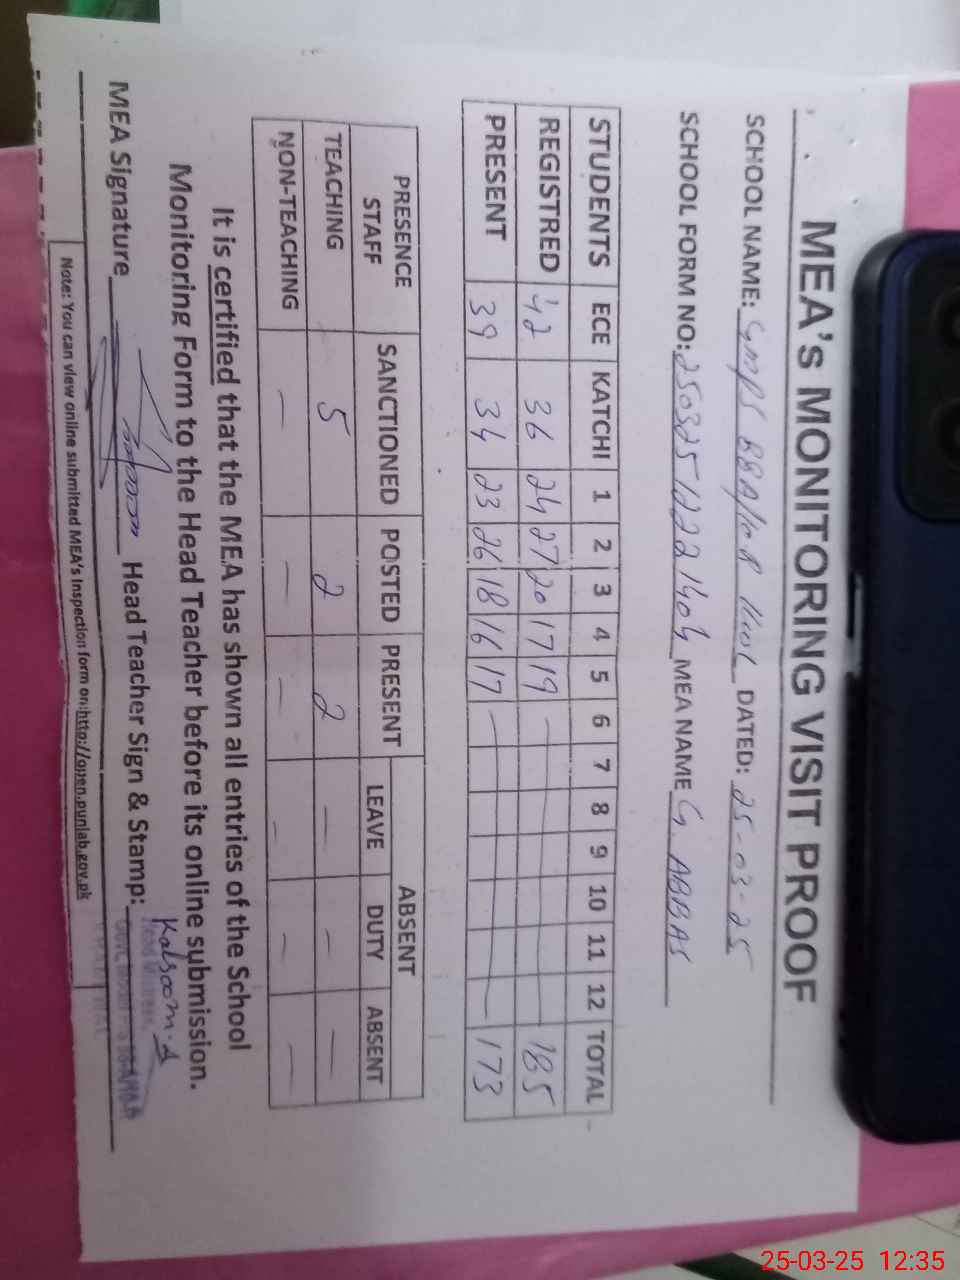 MEA's MONITORING VISIT PROOF
SCHOOL NAME: GMPS DATED: 25-03-25
SCHOOL FORM NO: 250325 MEA NAME G ABBAS
STUDENTS ECE KATCHI 1 2 3 4 5 6 7 8 9 10 11 12 TOTAL
REGISTRED 42 36 24 27 20 17 19 — 185
PRESENT 39 34 23 26 18 16 17 — 173
PRESENCE STAFF SANCTIONED POSTED PRESENT ABSENT
LEAVE DUTY ABSENT
TEACHING 5 2 2 — — —
NON-TEACHING — — — — — —
It is certified that the MEA has shown all entries of the School
Monitoring Form to the Head Teacher before its online submission.
MEA Signature Head Teacher Sign & Stamp: Kalsoom.A
Head
Note: You can view online submitted MEA's Inspection form on:http://open.punjab.gov.pk
25-03-25 12:35